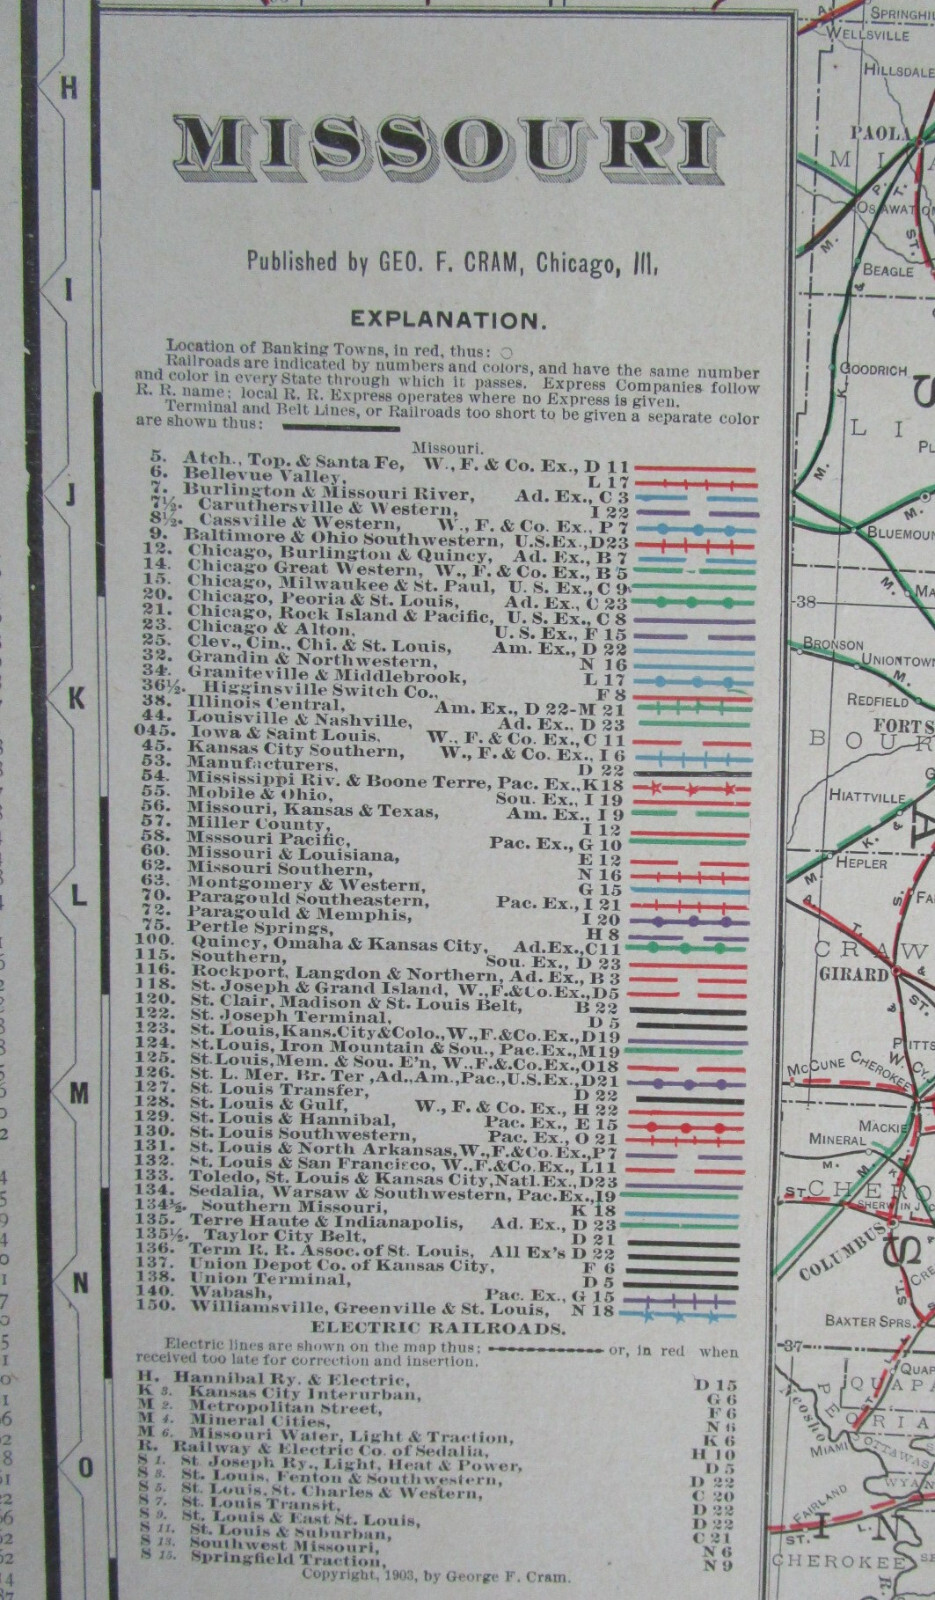 MISSOURI
Published by GEO. F. CRAM, Chicago, Ill.
EXPLANATION.
Location of Banking Towns, in red, thus:
Railroads are indicated by numbers and colors, and have the same number
and color in every State through which it passes. Express Companies follow
R. R. name; local R. R. Express operates where no Express is given.
Terminal and Belt Lines, or Railroads too short to be given a separate color
are shown thus:
Missouri.
5. Atch., Top. & Santa Fe, W., F. & Co. Ex., D 11
6. Bellevue Valley, L 17
7. Burlington & Missouri River, Ad. Ex., C 3
7½. Caruthersville & Western, I 22
8½. Cassville & Western, W., F. & Co. Ex., P 7
9. Baltimore & Ohio Southwestern, U.S.Ex.,D23
12. Chicago, Burlington & Quincy, Ad. Ex., B 7
14. Chicago Great Western, W., F. & Co. Ex., B 5
15. Chicago, Milwaukee & St. Paul, U. S. Ex., C 9
20. Chicago, Peoria & St. Louis, Ad. Ex., C 23
21. Chicago, Rock Island & Pacific, U. S. Ex., C 8
23. Chicago & Alton, U. S. Ex., F 15
25. Clev., Cin., Chi. & St. Louis, Am. Ex., D 22
32. Grandin & Northwestern, N 16
34. Graniteville & Middlebrook, L 17
36½. Higginsville Switch Co., F 8
38. Illinois Central, Am. Ex., D 22-M 21
44. Louisville & Nashville, Ad. Ex., D 23
045. Iowa & Saint Louis, W., F. & Co. Ex., C 11
45. Kansas City Southern, W., F. & Co. Ex., I 6
53. Manufacturers, D 22
54. Mississippi Riv. & Boone Terre, Pac. Ex.,K18
55. Mobile & Ohio, Sou. Ex., I 19
56. Missouri, Kansas & Texas, Am. Ex., I 9
57. Miller County, I 12
58. Msssouri Pacific, Pac. Ex., G 10
60. Missouri & Louisiana, E 12
62. Missouri Southern, N 16
63. Montgomery & Western, G 15
70. Paragould Southeastern, Pac. Ex., I 21
72. Paragould & Memphis, I 20
75. Pertle Springs, H 8
100. Quincy, Omaha & Kansas City, Ad.Ex.,C11
115. Southern, Sou. Ex., D 23
116. Rockport, Langdon & Northern, Ad. Ex., B 3
118. St. Joseph & Grand Island, W.,F.&Co.Ex.,D5
120. St. Clair, Madison & St. Louis Belt, B 22
122. St. Joseph Terminal, D 5
123. St. Louis,Kans.City&Colo.,W.,F.&Co.Ex.,D19
124. St.Louis, Iron Mountain & Sou., Pac.Ex.,M19
125. St.Louis,Mem. & Sou. E'n, W.,F.&Co.Ex.,O18
126. St. L. Mer. Br. Ter ,Ad.,Am.,Pac.,U.S.Ex.,D21
127. St. Louis Transfer, D 22
128. St. Louis & Gulf, W., F. & Co. Ex., H 22
129. St. Louis & Hannibal, Pac. Ex., E 15
130. St. Louis Southwestern, Pac. Ex., O 21
131. St. Louis & North Arkansas,W.,F.&Co.Ex.,P7
132. St. Louis & San Francisco, W.,F.&Co.Ex., L11
133. Toledo, St. Louis & Kansas City,Natl.Ex.,D23
134. Sedalia, Warsaw & Southwestern, Pac.Ex.,I9
134½. Southern Missouri, K 18
135. Terre Haute & Indianapolis, Ad. Ex., D 23
135½. Taylor City Belt, D 21
136. Term R. R. Assoc. of St. Louis, All Ex's D 22
137. Union Depot Co. of Kansas City, F 6
138. Union Terminal, D 5
140. Wabash, Pac. Ex., G 15
150. Williamsville, Greenville & St. Louis, N 18
ELECTRIC RAILROADS.
Electric lines are shown on the map thus: or, in red when
received too late for correction and insertion.
H. Hannibal Ry. & Electric, D 15
K 3. Kansas City Interurban, G 6
M 2. Metropolitan Street, F 6
M 4. Mineral Cities, N 6
M 6. Missouri Water, Light & Traction, K 6
R. Railway & Electric Co. of Sedalia, H 10
S 1. St Joseph Ry., Light, Heat & Power, D 5
S 3. St. Louis, Fenton & Southwestern, D 22
S 5. St. Louis, St. Charles & Western, C 20
S 7. St. Louis Transit, D 22
S 9. St. Louis & East St. Louis, D 22
S 11. St. Louis & Suburban, C 21
S 13. Southwest Missouri, N 6
S 15. Springfield Traction, N 9
Copyright, 1903, by George F. Cram.
H
I
J
K
L
M
N
O
WELLSVILLE
HILLSDALE
PAOLA
BEAGLE
GOODRICH
38
BRONSON
UNIONTOWN
REDFIELD
HIATTVILLE
HEPLER
GIRARD
MCCUNE
CHEROKEE
MINERAL
COLUMBUS
BAXTER SPRS.
37
Neosho
MIAMI
OTTAWAS
FAIRLAND
CHEROKEE